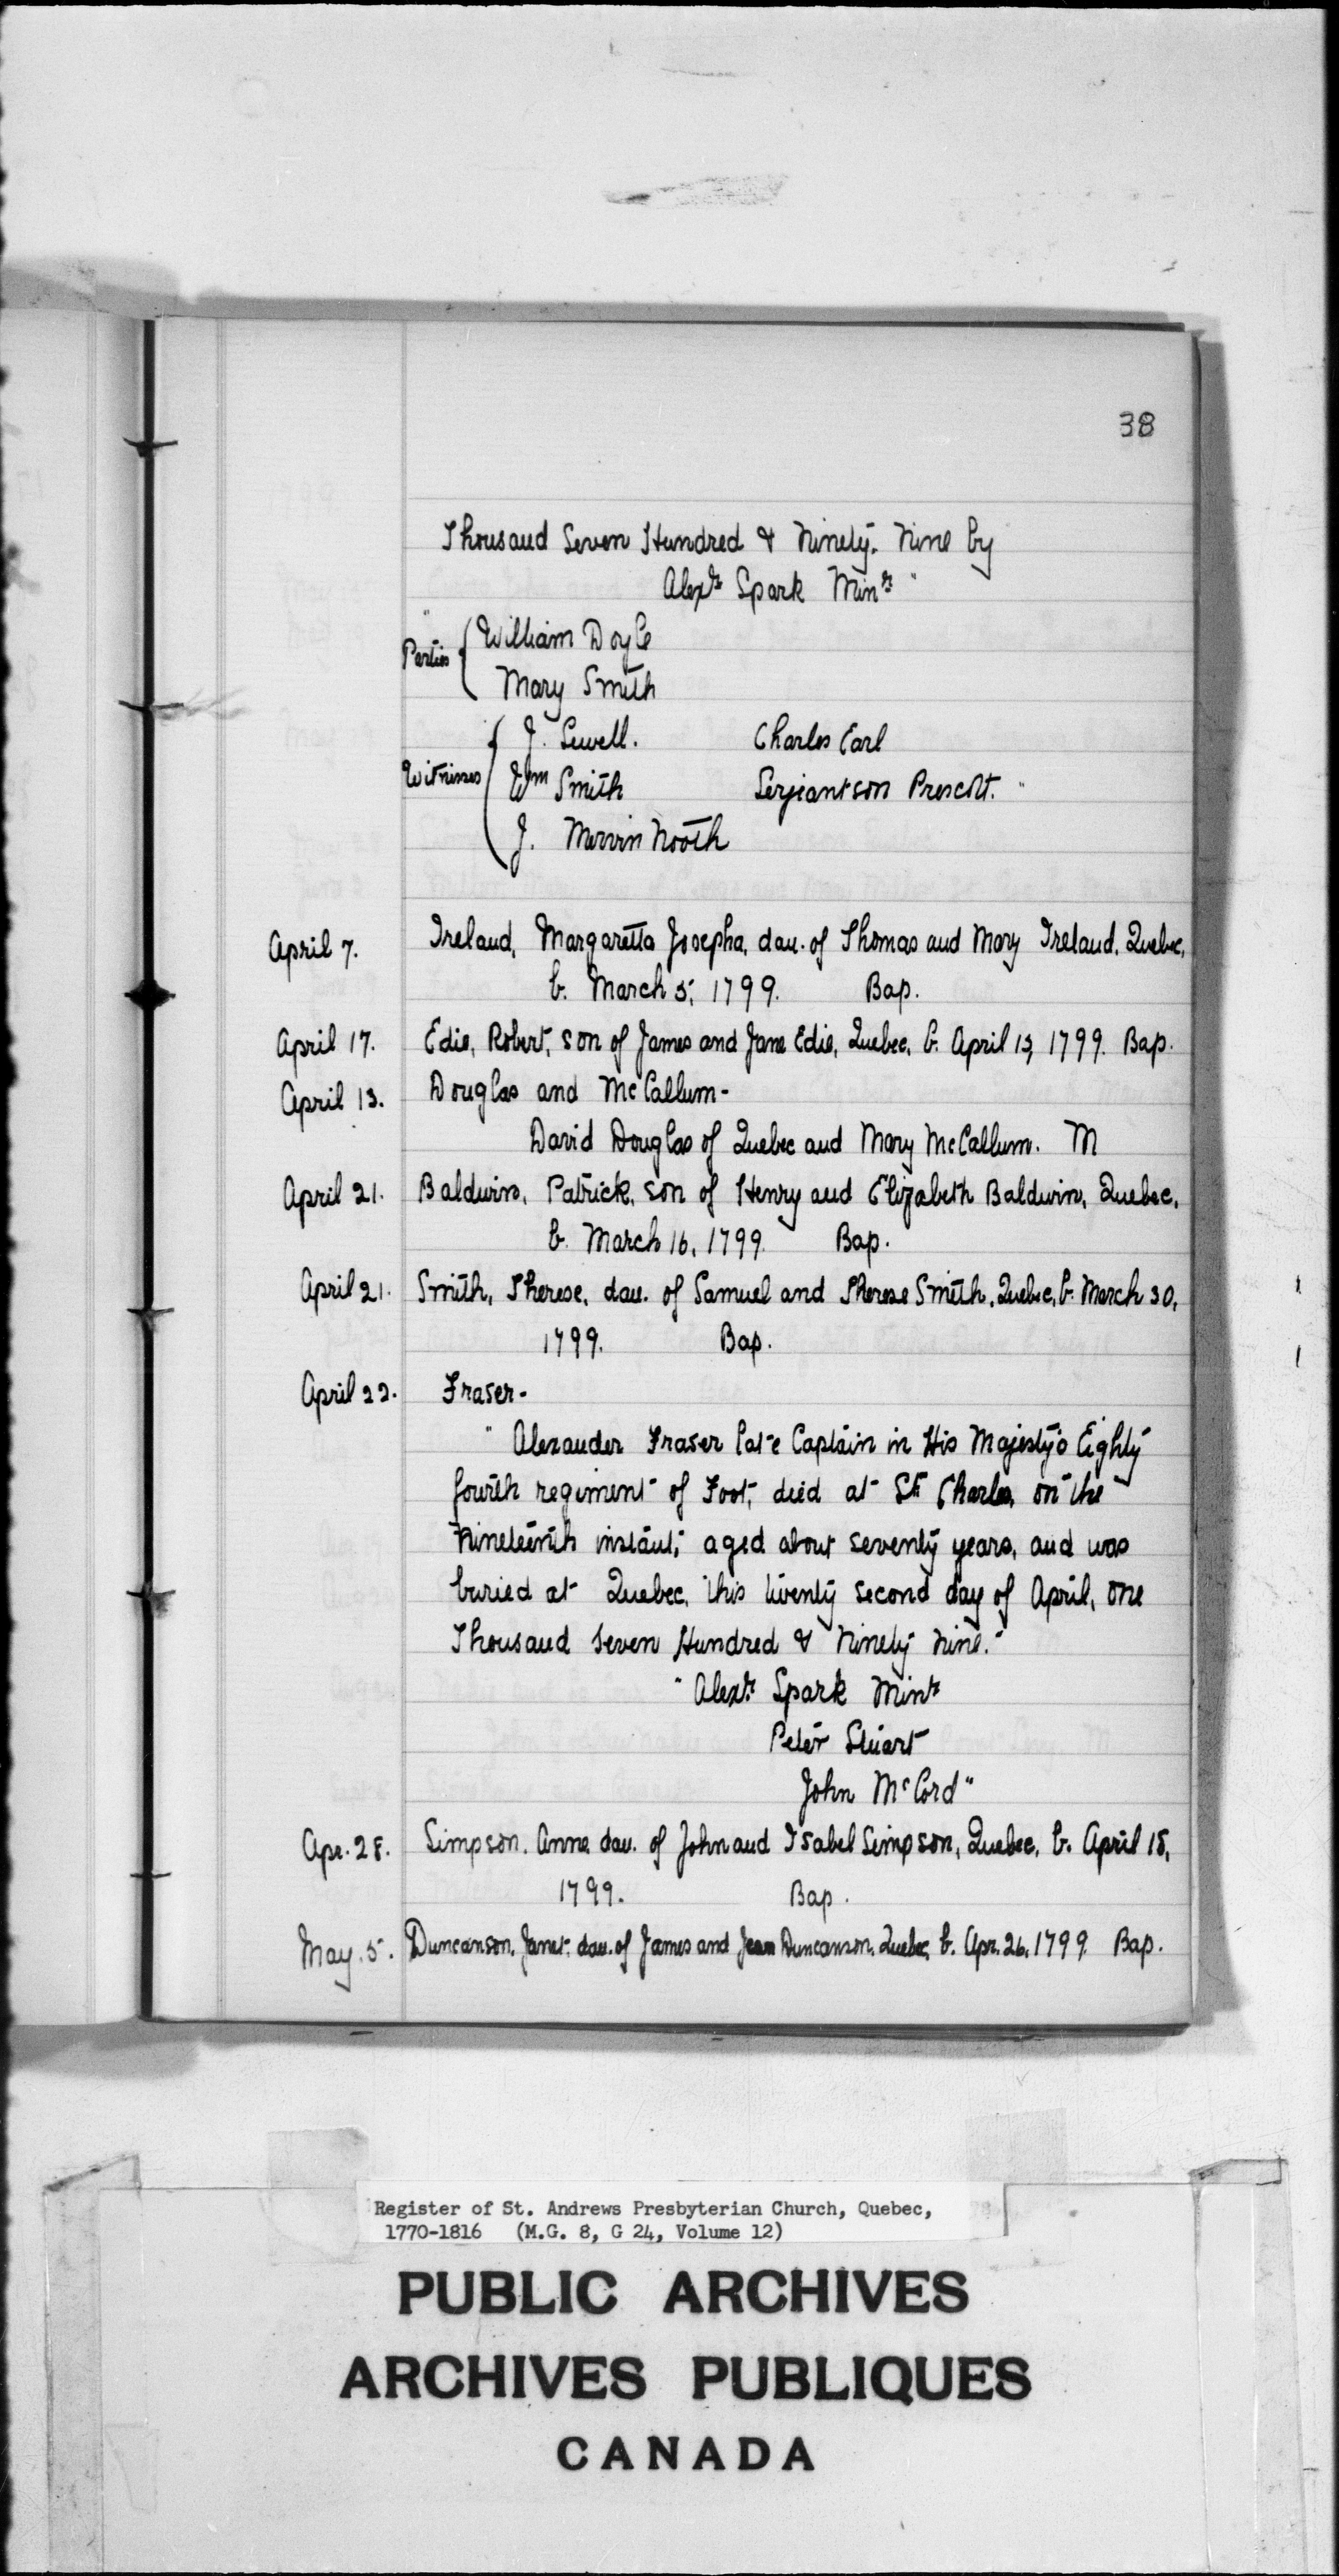 38
Thousand Seven Hundred & Ninety. Nine by
Alexr. Spark Minr. "
" Parties { William Doyle
Mary Smith
Witnesses { J. Sewell. Charles Earl
Wm Smith Serjeantson Prescott. "
J. Mervin Nooth
April 7. Ireland, Margaretta Josepha, dau. of Thomas and Mary Ireland, Quebec,
b. March 5, 1799. Bap.
April 17. Edie, Robert, son of James and Jane Edie, Quebec, b. April 13, 1799. Bap.
April 13. Douglas and McCallum-
David Douglas of Quebec and Mary McCallum. M
April 21. Baldwin, Patrick, son of Henry and Elizabeth Baldwin, Quebec,
b. March 16, 1799. Bap.
April 21. Smith, Therese, dau. of Samuel and Therese Smith, Quebec, b. March 30,
1799. Bap.
April 22. Fraser-
" Alexander Fraser late Captain in His Majesty's Eighty
fourth regiment of Foot, died at St. Charles, on the
Nineteenth instant, aged about seventy years, and was
buried at Quebec, this twenty second day of April, one
Thousand Seven Hundred & Ninety Nine."
"Alexr. Spark Minr.
Peter Stuart
John McCord"
Apr. 28. Simpson, Anne, dau. of John and Isabel Simpson, Quebec, b. April 15,
1799. Bap.
May. 5. Duncanson, Janet, dau. of James and Jean Duncanson, Quebec, b. Apr. 26, 1799. Bap.
Register of St. Andrews Presbyterian Church, Quebec,
1770-1816 (M.G. 8, G 24, Volume 12)
PUBLIC ARCHIVES
ARCHIVES PUBLIQUES
CANADA